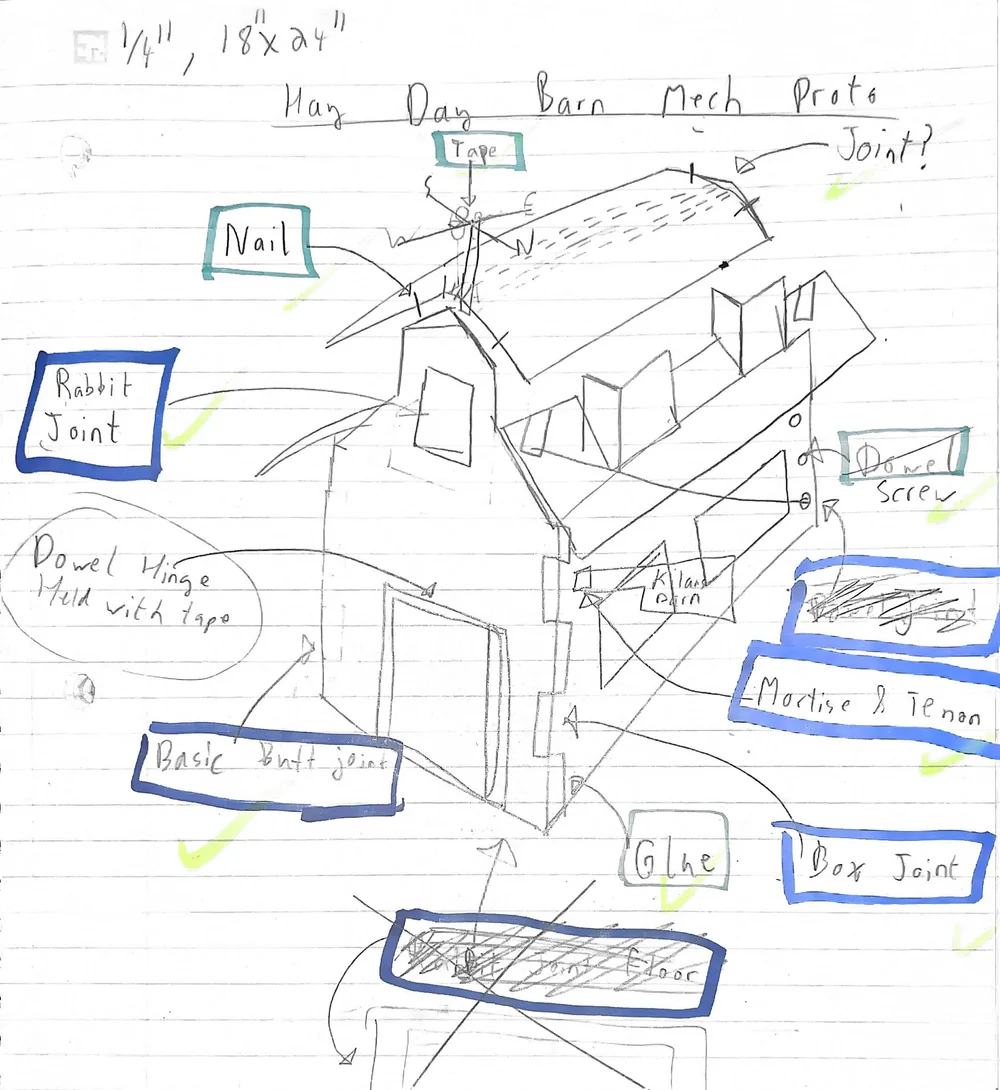 1/4", 18"x24"
Hay Day Barn Mech Proto
Tape
Joint?
S
E
W
N
Nail
Rabbit
Joint
Dowel
Screw
Dowel Hinge
Held with tape
Barn
Mortise & Tenon
Basic Butt joint
Glue
Box Joint
Joint Floor